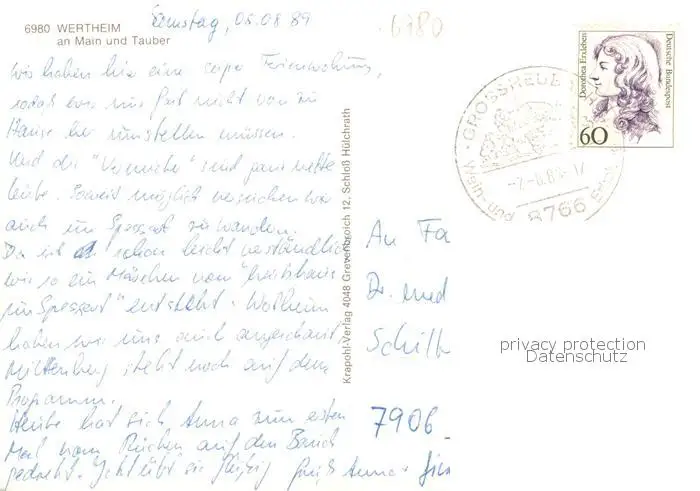 Samstag, 05.08.89
6980
6980 WERTHEIM
an Main und Tauber
Wir haben hier eine super Ferienwohnung,
sodaß wir uns fast nicht von zu
Hause her umstellen müssen.
Und die "Vermieter" sind ganz nette
Leute. Soweit möglich versuchen wir
auch im Spessart zu wandern.
Da ist schon leicht verständlich
wie so ein Märchen vom "Wirtshaus
im Spessart" entsteht. Wertheim
haben wir uns auch angeschaut,
Miltenberg steht noch auf dem
Programm.
Heute hat sich Anna zum ersten
Mal vom Rücken auf den Bauch
gedreht. Jetzt übt sie fleißig
Anna +
Krapohl-Verlag 4048 Grevenbroich 12, Schloß Hülchrath
Dorothea Erxleben
Deutsche Bundespost
60
GROSSHEUB
Wein- und
8766
An Fa
Dr. med
Schill
7906
privacy protection
Datenschutz